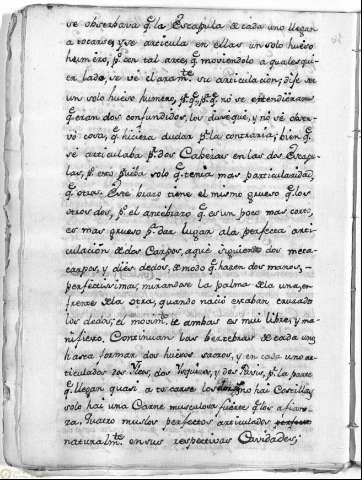 se observava q.e la Escapula de cada uno llegan
a tocarse, y se articula en ellas un solo hueso
humero, p.o con tal arte, q.e moviendolo a qualesqui-
er lado, se vé claram.te su articulacion; dixe ser
un solo hueso humero, p.r q.e no se entendieran
q.e eran dos confundidos, los duxe, y no sé obser-
vó cosa, q.e hiciera dudar p.r la contraria; bien q.e
sé articulaba p.r dos Cabezas en las dos Escapu-
las, p.o eso solo q.e tenia mas particularidad,
q.e otros. Este brazo tiene el mismo grueso q.e los
otros dos, p.o el antebrazo q.e es un poco mas corto,
es mas grueso p.r dar lugar a la perfecta arti-
culación de dos Carpos, a que siguiendo dos meta-
carpos, y diés dedos, de modo q.e hazen dos manos,
perfectissimas, mirandose la palma de la una, en-
frente de la otra, quando nació estaban cruzados
los dedos; el movim.to de ambas es mui libre, y ma-
nifiesto. Continuan las bertebras de cada uno
hasta formar dos huesos sacros, y en cada uno ar-
ticulados dos Ileos, dos Isquiones, y dos Pubis, p.r la parte
q.e llegan quasi a tocarse los no hai Costillas,
solo hai una Carne musculosa fuerte q.e los afian-
za. Quatro muslos perfectos articulados
naturalm.te en sus respectivas Cavidades;